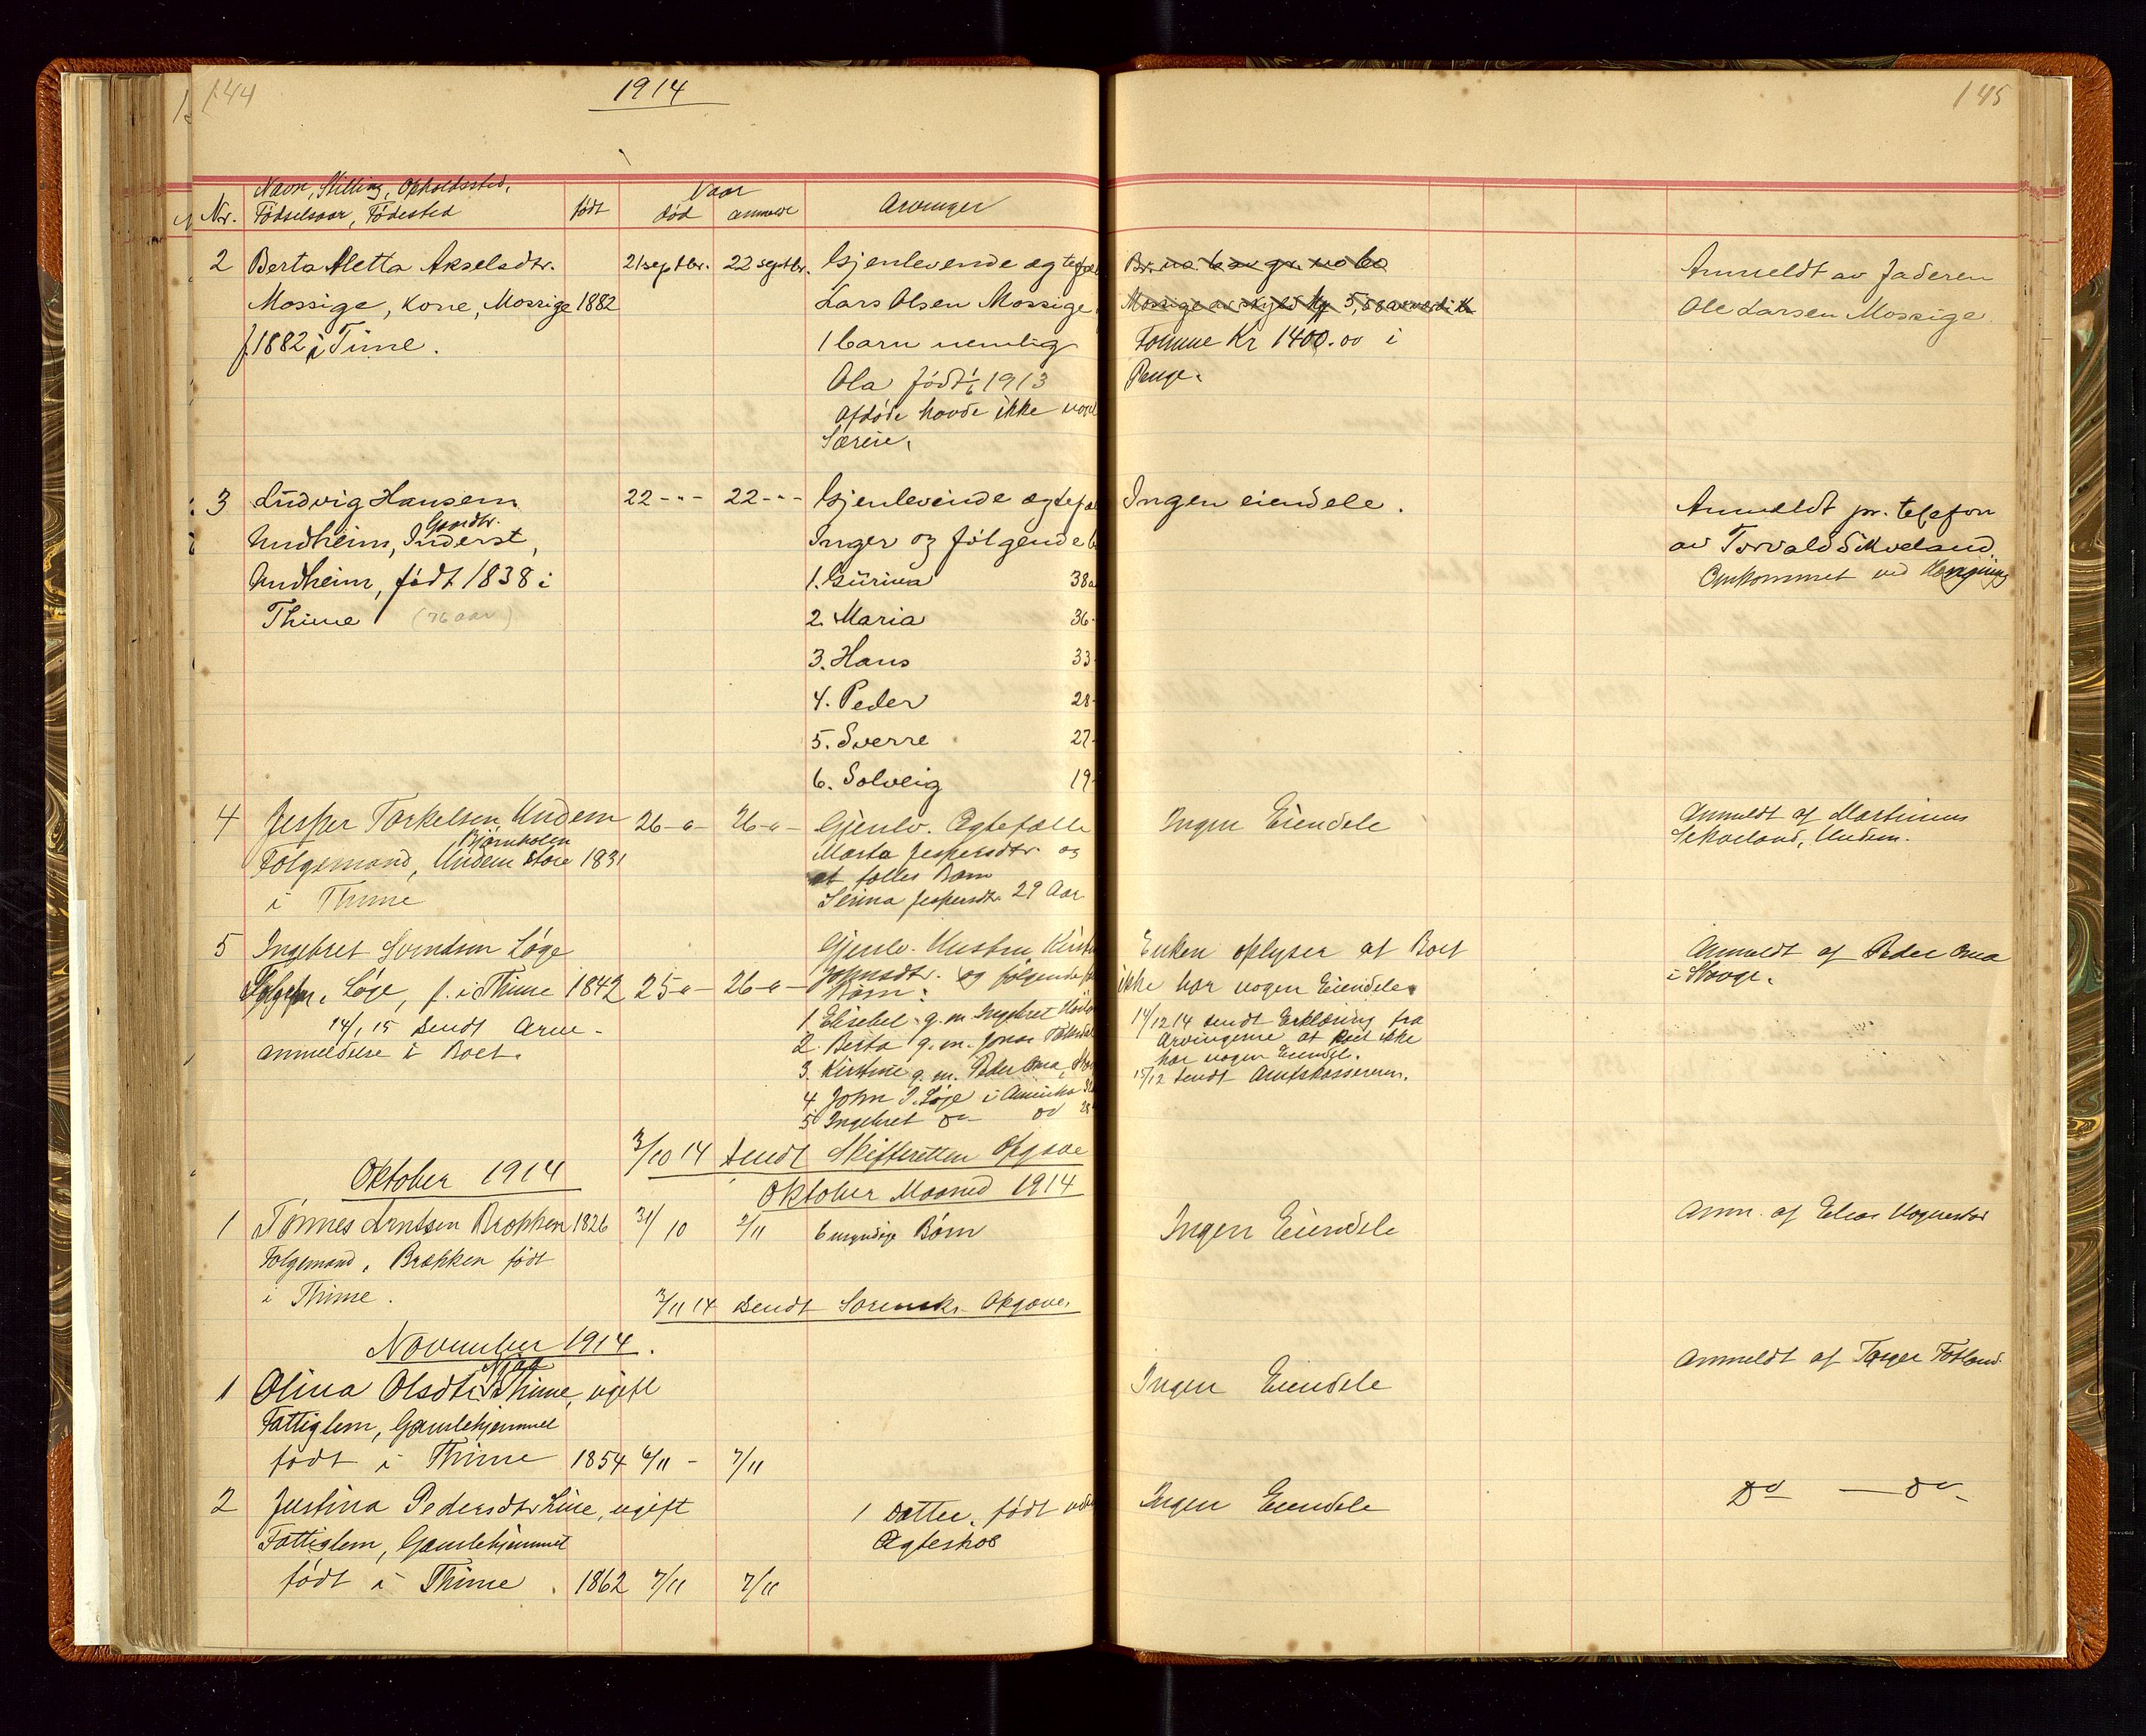 144
1914
Nr.
Navn, Stilling, Opholdssted,
Fødselsaar, Fødested
født
Naar
død
anmeldt
Arvinger
2 Berta Aletta Akselsdtr.
Mossige, Kone, Mossige 1882
f. 1882 i Time.
21 septbr. 22 septbr.
Gjenlevende ægtefæl
Lars Olsen Mossige
1 barn nemlig
Ola født 1/6 1913
Afdøde havde ikke
Særeie.
3 Ludvig Hansen
Gaardbr.
Undheim, Inderst,
Undheim, født 1838 i
Thime (76 aar)
22 - " - 22 - " -
Gjenlevende ægtefæ
Inger og følgende b
1. Gurina 38 a
2. Maria 36 -
3. Hans 33
4. Peder 28 -
5. Sverre 27 -
6. Solveig 19 -
4 Jesper Torkelsen Undem
Bjørnholen
Folgemand, Undem store 1831
i Thime
26 - " - 26 - " -
Gjenlv. Ægtefælle
Marta Jespersdtr. og
et fælles Barn
Serina Jespersdtr. 29 Aar
5 Ingebret Svendsen Løge
Løge, f. i Thime 1842
14/1 15 sendt Arve-
anmeldelse i Boet.
25 - " - 26 - " -
Gjenlv. Hustru Kirst
Johnsdtr. og følgende
Børn:
1 Elisebet g. m. Ingebret
2. Berta g. m. Jonas
3. Kirstine g. m. Peder Oma,
4 John I. Løge i Amerika
5 Ingebret do do
3/10 14 sendt Skifteretten Opgave
Oktober 1914
Oktober Maaned 1914
1 Tønnes Arntsen Brøkken 1826
Folgemand, Brøkken født
i Thime.
31/10 2/11
6 myndige Børn
3/11 14 sendt Sorensk. Opgave.
November 1914.
Njaa
1 Olina Olsdtr. Thime, ugift
Fattiglem, Gamlehjemmet
født i Thime 1854 6/11 - 7/11
2 Justina Pedersdtr. Line, ugift
Fattiglem, Gamlehjemmet
født i Thime. 1862 7/11 7/11
1 Datter, født
Ægteskab
145
Mossige av skyld
Formue Kr 1400.00 i
Penge.
Anmeldt av faderen
Ole Larsen Mossige
Ingen eiendele.
Anmeldt pr. telefon
av Torvald Skveland.
Omkommet ved Hengning
Ingen Eiendele
Anmeldt af Martinius
Skveland, Undem.
Enken oplyser at Boet
ikke har nogen Eiendele.
14/12 14 sendt Erklæring fra
Arvingerne at Boet ikke
har nogen Eiendele.
15/12 sendt Amtskassereren.
Anmeldt af Peder Oma
i
Ingen Eiendele
Anm. af Elias
Ingen Eiendele
Anmeldt af Torger Fotland.
Ingen Eiendele
do — do